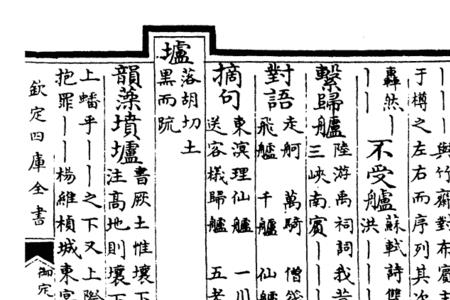 丨丨與竹齋對布賓主
于樽之左右而序列其次
轟然丨丨
丨丨
不受艫
蘇軾詩雙
洪
繫歸艫
陸游禹祠詞我昔
三峽南賓丨
對語
走舸 萬騎 僧
飛艫 千艫 仙艫
摘句
東溟理仙艫 一川
送客檥歸艫 五老
壚
落胡切土
黑而疏
韻藻墳壚
書厥土惟壤下
注高地則壤下
上蟠乎丨丨之下又上
抱罪丨丨楊維楨城東
欽定四庫全書
御定